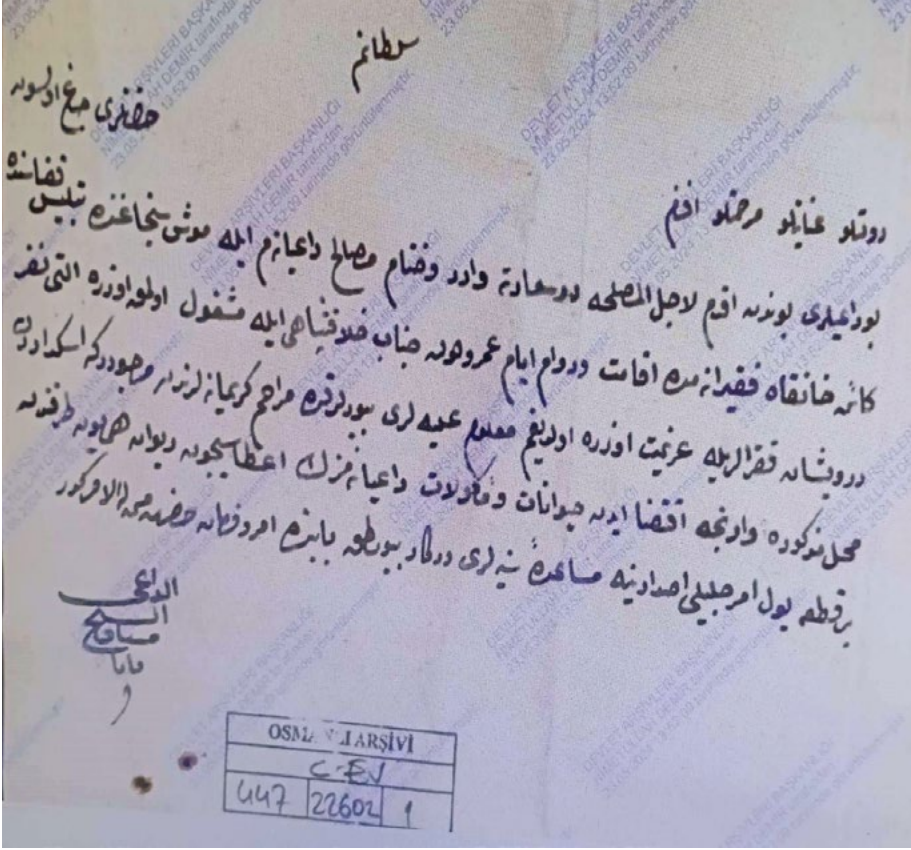 دولتلو عنايتلو مرحمتلو افندم
سلطانم
حضرتلرى صاغ اولسون
بو داعيلرى بوندن اقدم لاجل المصلحه درسعادته وارد وختام مصالح داعيانه م ايله موش سنجاغنده تبليس قضاسنده
كائن خانقاه فقيرانه مده اقامت ودوام ايام عمر وهدن جناب خلافتپناهى ايله مشغول اولمق اوزره التى نفر
درويشان فقرا ايله عزيمت اوزره اولديغم معلوم عليه لرى بيورلدقده مراحم كريمانه لرندن مرجودركه اسكداردن
محل مذكوره وارنجه اقتضا ايدن حيوانات ومأكولات داعيانه مزك اعطاسيچون ديوان همايون طرفندن
برقطعه يول امر جليلى اصدارينه مساعدۀ سنيه لرى دركار بيورلمق بابنده امر وفرمان حضرت من له الامركدر
الداعى
الشيخ
بابا
OSMANLI ARŞİVİ
C-EV
447 22602 1
DEVLET ARŞİVLERİ BAŞKANLIĞI
NİMETULLAH DEMİR tarafından
23.05.2024 13:52:09 tarihinde görüntülenmiştir.